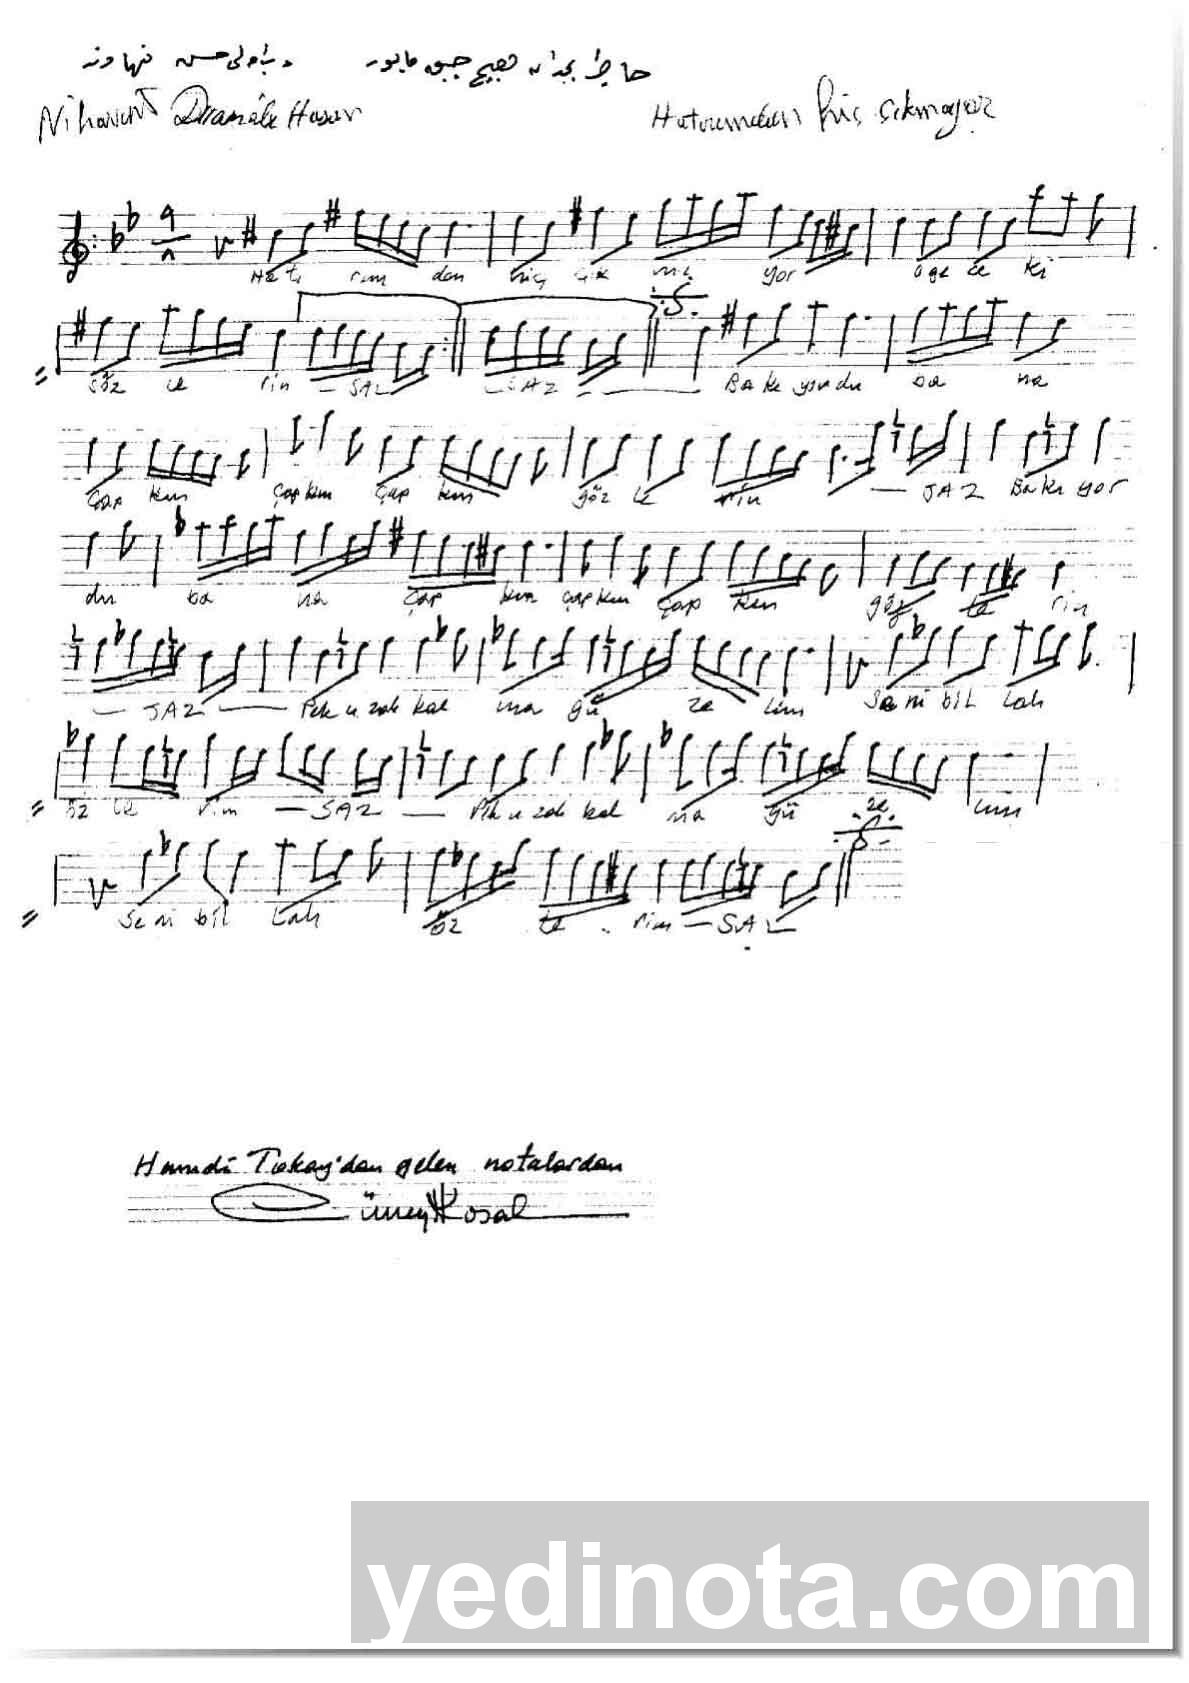 Nihavent Dramalı Hasan Hatırımdan hiç çıkmayor
Ha tı rım dan hiç çık mı yor o ge ce ki
söz le rin - SAZ - SAZ - Ba kı yordu ba na
Çap kın Çap kın Çap kın göz le rin - SAZ Ba kı yor
du ba na Çap kın çap kın Çap kın göz le rin
- SAZ - Pek u zak kal ma gü ze lim Se ni bil lah
öz le rim - SAZ - Pek u zak kal ma gü ze lim
Se ni bil lah öz le rim - SAZ -
Hamdi Tokay'dan gelen notalardan
Cüneyt Kosal
yedinota.com